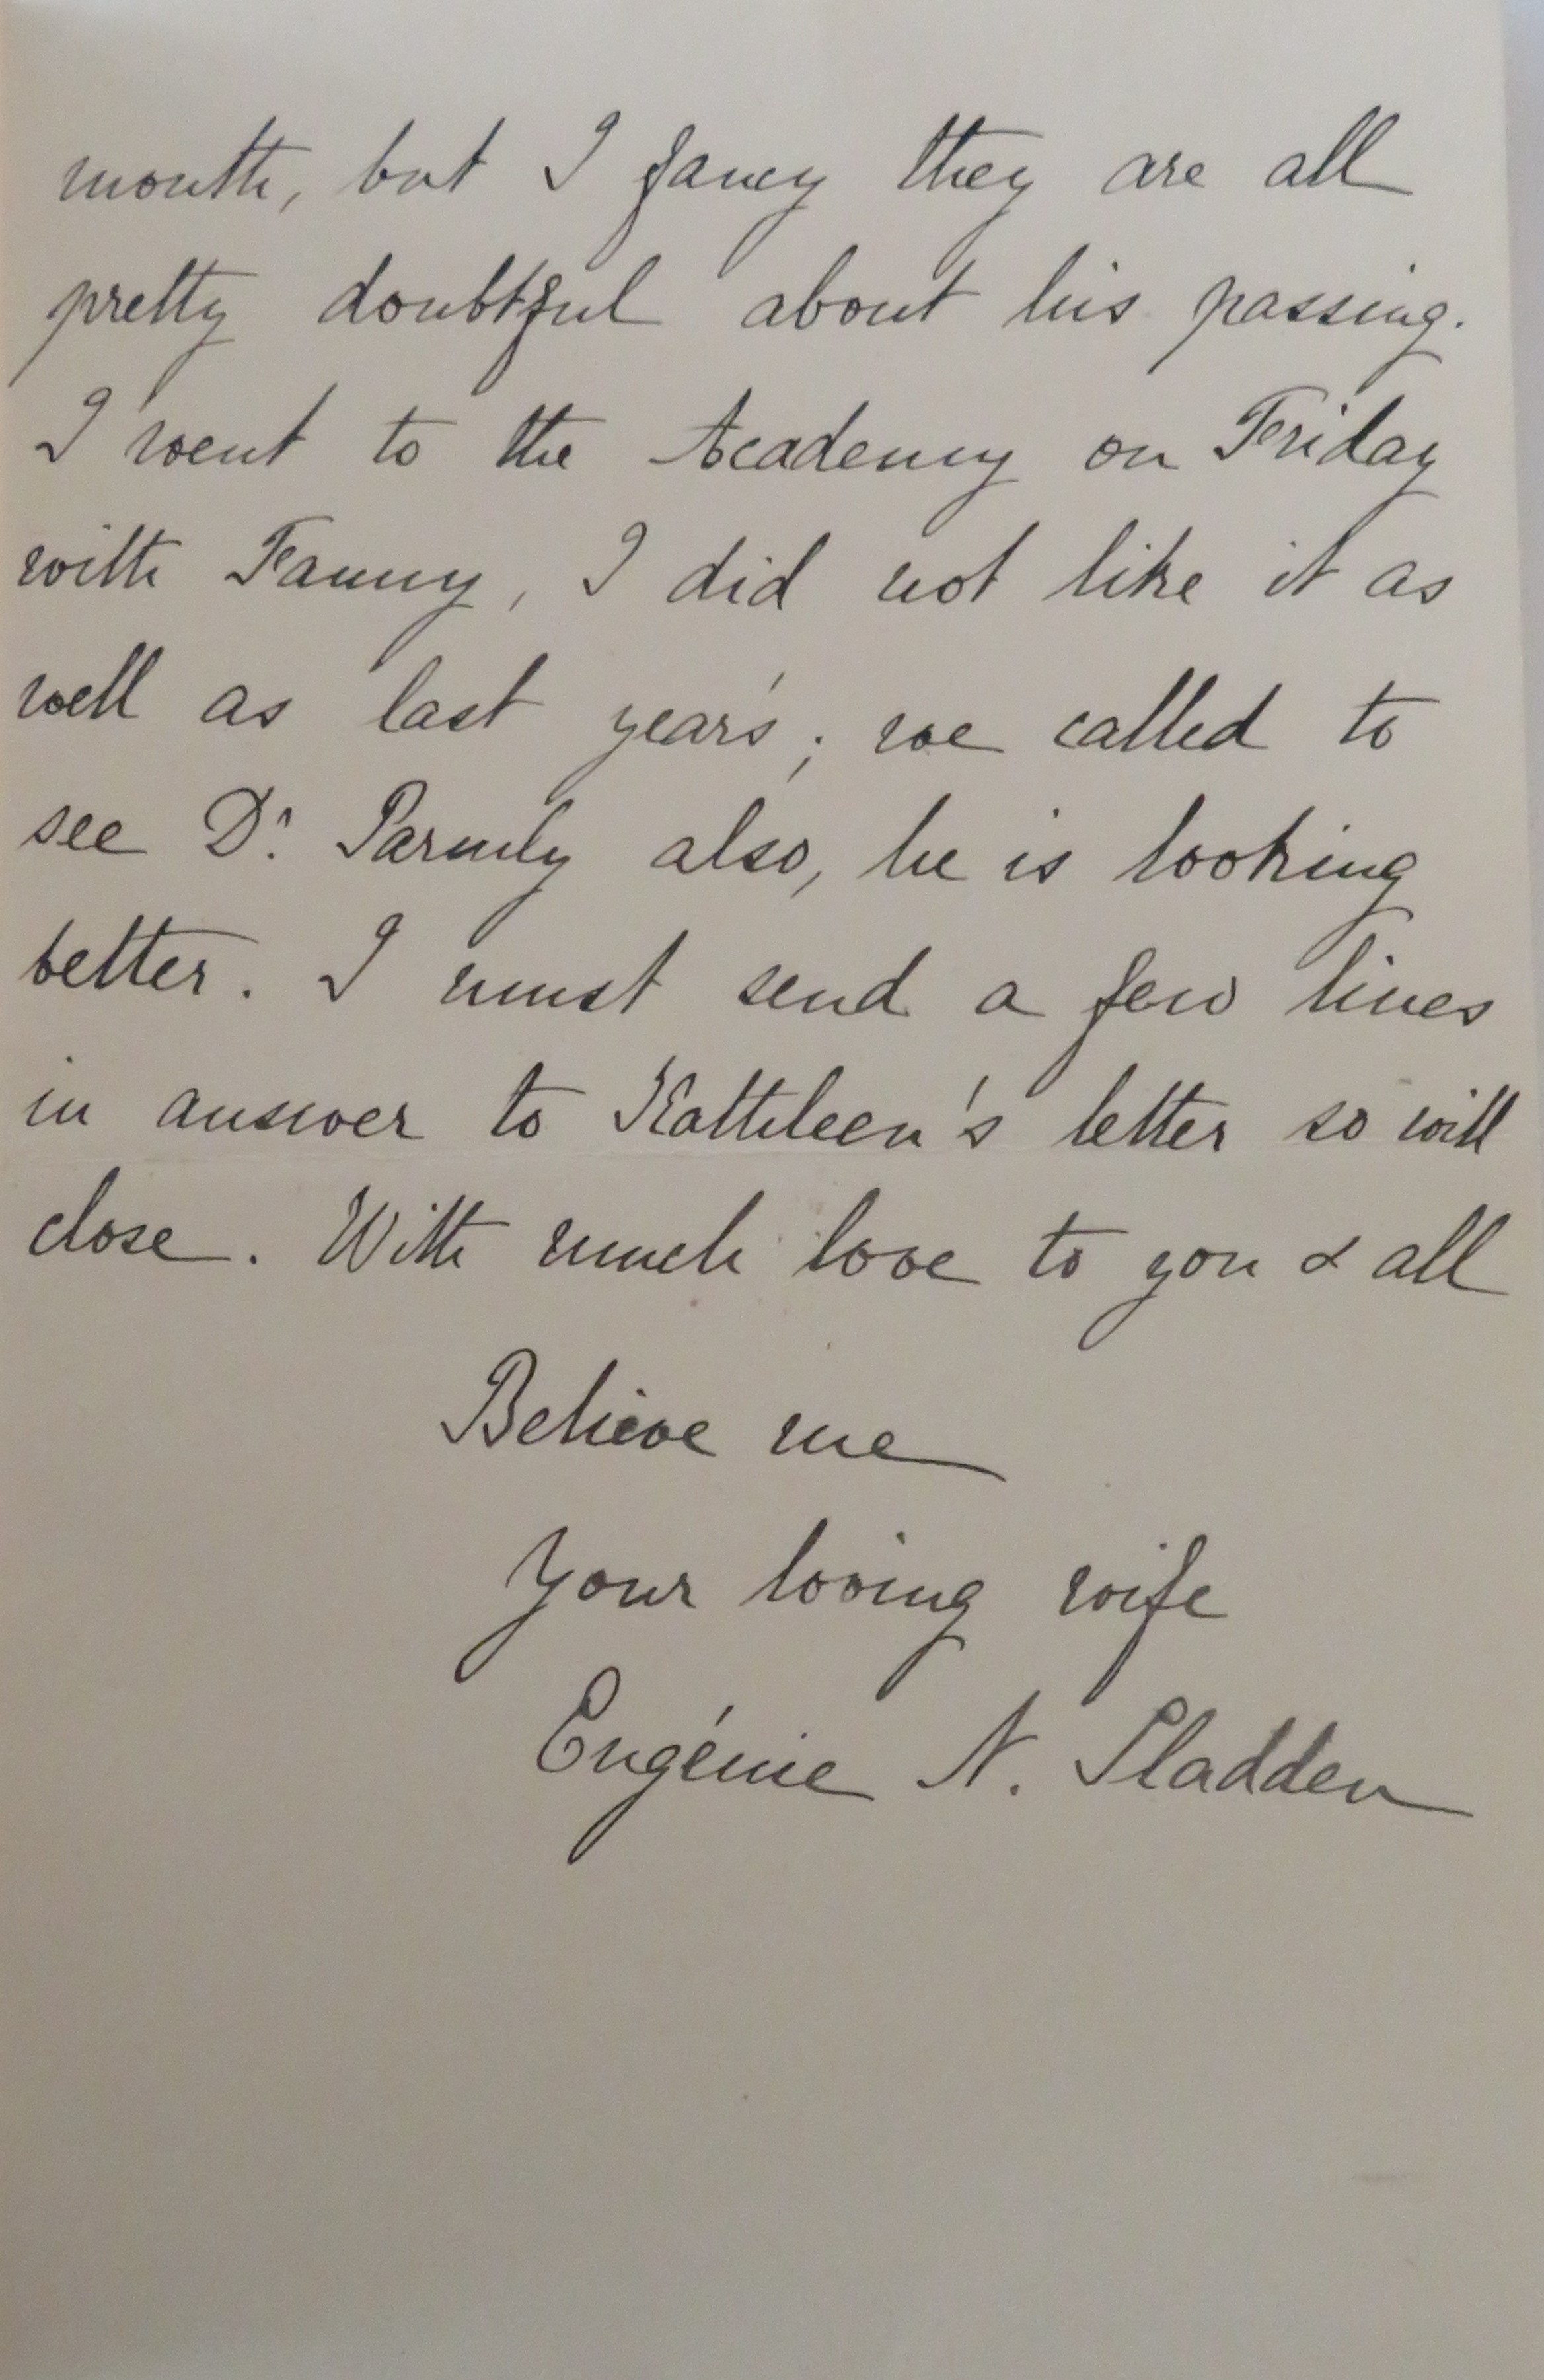 month, but I fancy they are all
pretty doubtful about his passing.
I went to the Academy on Friday
with Fanny, I did not like it as
well as last year's; we called to
see Dr. Parmly also, he is looking
better. I must send a few lines
in answer to Kathleen's letter so will
close. With much love to you & all
Believe me
Your loving wife
Eugénie N. Sladden